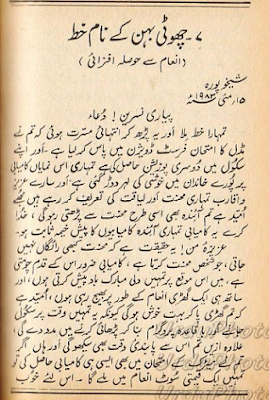 ۷۔ چھوٹی بہن کے نام خط
(انعام سے حوصلہ افزائی)
شیخوپورہ
۱۵ مئی ۱۹۸۳ء
پیاری نسرین! دُعاء
تمہارا خط ملا اور یہ پڑھ کر انتہائی مسرت ہوئی کہ تم نے
مڈل کا امتحان فرسٹ ڈویژن میں پاس کر لیا ہے۔ اور اپنے
سکول میں دُوسری پوزیشن حاصل کی ہے تمہاری اس نمایاں کامیابی
پر پُورے خاندان میں خوشی کی لہر دوڑ گئی ہے اور سارے عزیز
و اقارب تمہاری محنت اور لیاقت کی تعریف کر رہے ہیں مجھے
اُمید ہے تم آئندہ بھی اسی طرح محنت سے پڑھتی رہو گی، خُدا
کرے یہ کامیابی تمہاری آئندہ کامیابیوں کا پیش خیمہ ثابت ہو۔
عزیزۂ من! یہ حقیقت ہے کہ محنت کبھی رائگاں نہیں
جاتی، جو شخص محنت کرتا ہے، کامیابی ضرور اس کے قدم چومتی
ہے، میں اس موقع پر تمہیں دلی مبارک باد پیش کرتی ہوں، اور
ساتھ ہی ایک گھڑی انعام کے طور پر بھیج رہی ہوں، اُمید ہے
کہ تم گھڑی پا کر بہت خوش ہو گی کیونکہ یہ تمہیں وقت پر سکول
جانے اور باقاعدہ پروگرام بنا کر پڑھائی کرنے میں مدد دے گی،
علاوہ ازیں تم اس سے پابندی وقت بھی سیکھو گی اور ہاں اگر
تم نے میٹرک کے امتحان میں بھی ایسی ہی کامیابی حاصل کی تو
تمہیں ایک قیمتی سُوٹ انعام میں ملے گا۔ اس لئے خوب